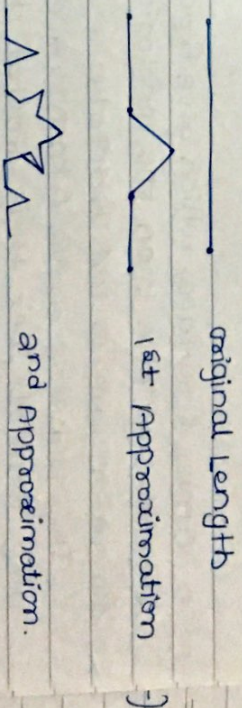 Original Length
1st Approximation
2nd Approximation.